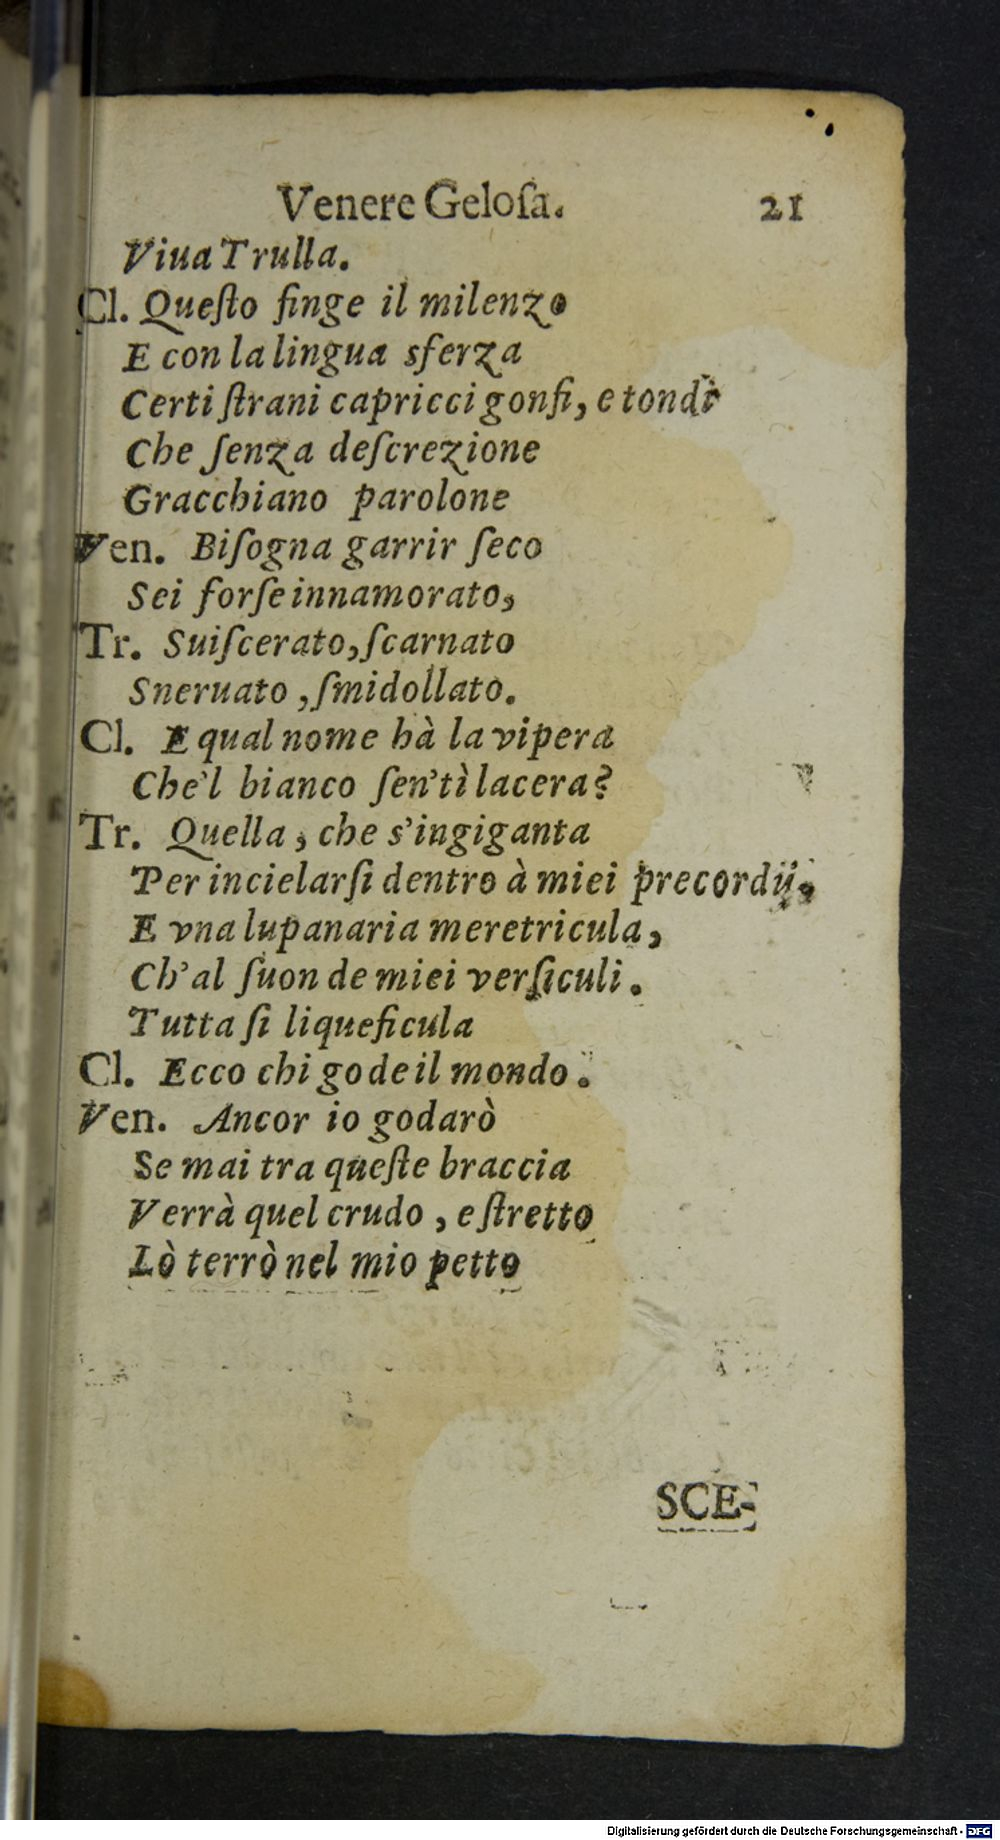 Venere Geloſa. 21
Viua Trulla.
Cl. Queſto finge il milenzo
E con la lingua sferza
Certi ſtrani capricci gonfi, e tondi
Che ſenza deſcrezione
Gracchiano parolone
Ven. Biſogna garrir ſeco
Sei forſe innamorato,
Tr. Suiſcerato, ſcarnato
Sneruato, ſmidollato.
Cl. E qual nome hà la vipera
Che'l bianco ſen'tì lacera?
Tr. Quella, che s'ingiganta
Per incielarſi dentro à miei precordij,
E vna lupanaria meretricula,
Ch'al ſuon de miei verſiculi.
Tutta ſi liqueficula
Cl. Ecco chi gode il mondo.
Ven. Ancor io godarò
Se mai tra queſte braccia
Verrà quel crudo, e ſtretto
Lò terrò nel mio petto
SCE-
Digitalisierung gefördert durch die Deutsche Forschungsgemeinschaft - DFG